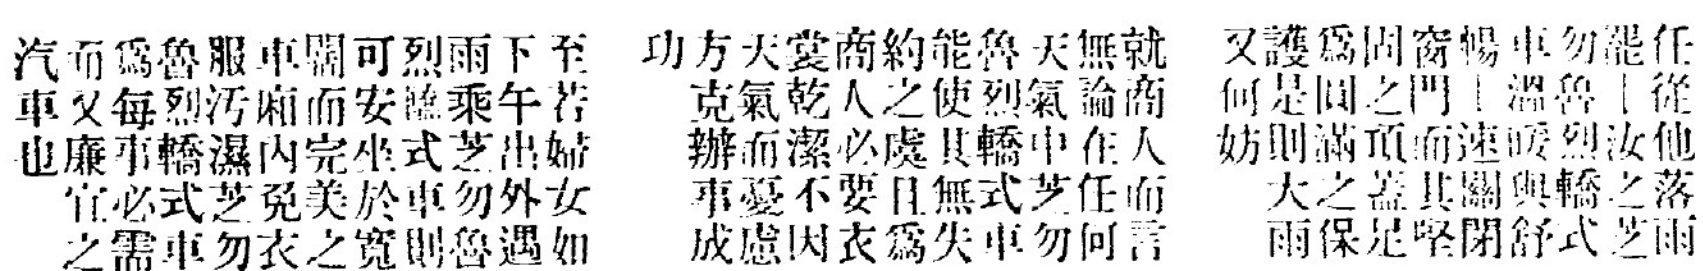 任從他落雨
罷｜汝之芝
勿魯烈轎式
車溫暖與舒
暢｜速關閉
窗門而其堅
固之頂蓋足
爲圓滿之保
護是則大雨
又何妨
就商人而言
無論在任何
天氣中芝勿
魯烈轎式車
能使其無失
約之處且爲
商人必要衣
裳乾潔不因
天氣而憂慮
方克辦事成
功
至若婦女如
下午出外遇
雨乘芝勿魯
烈轎式車則
可安坐於寬
闊而完美之
車廂內免衣
服汚濕芝勿
魯烈轎式車
爲每事必需
而又廉宜之
汽車也